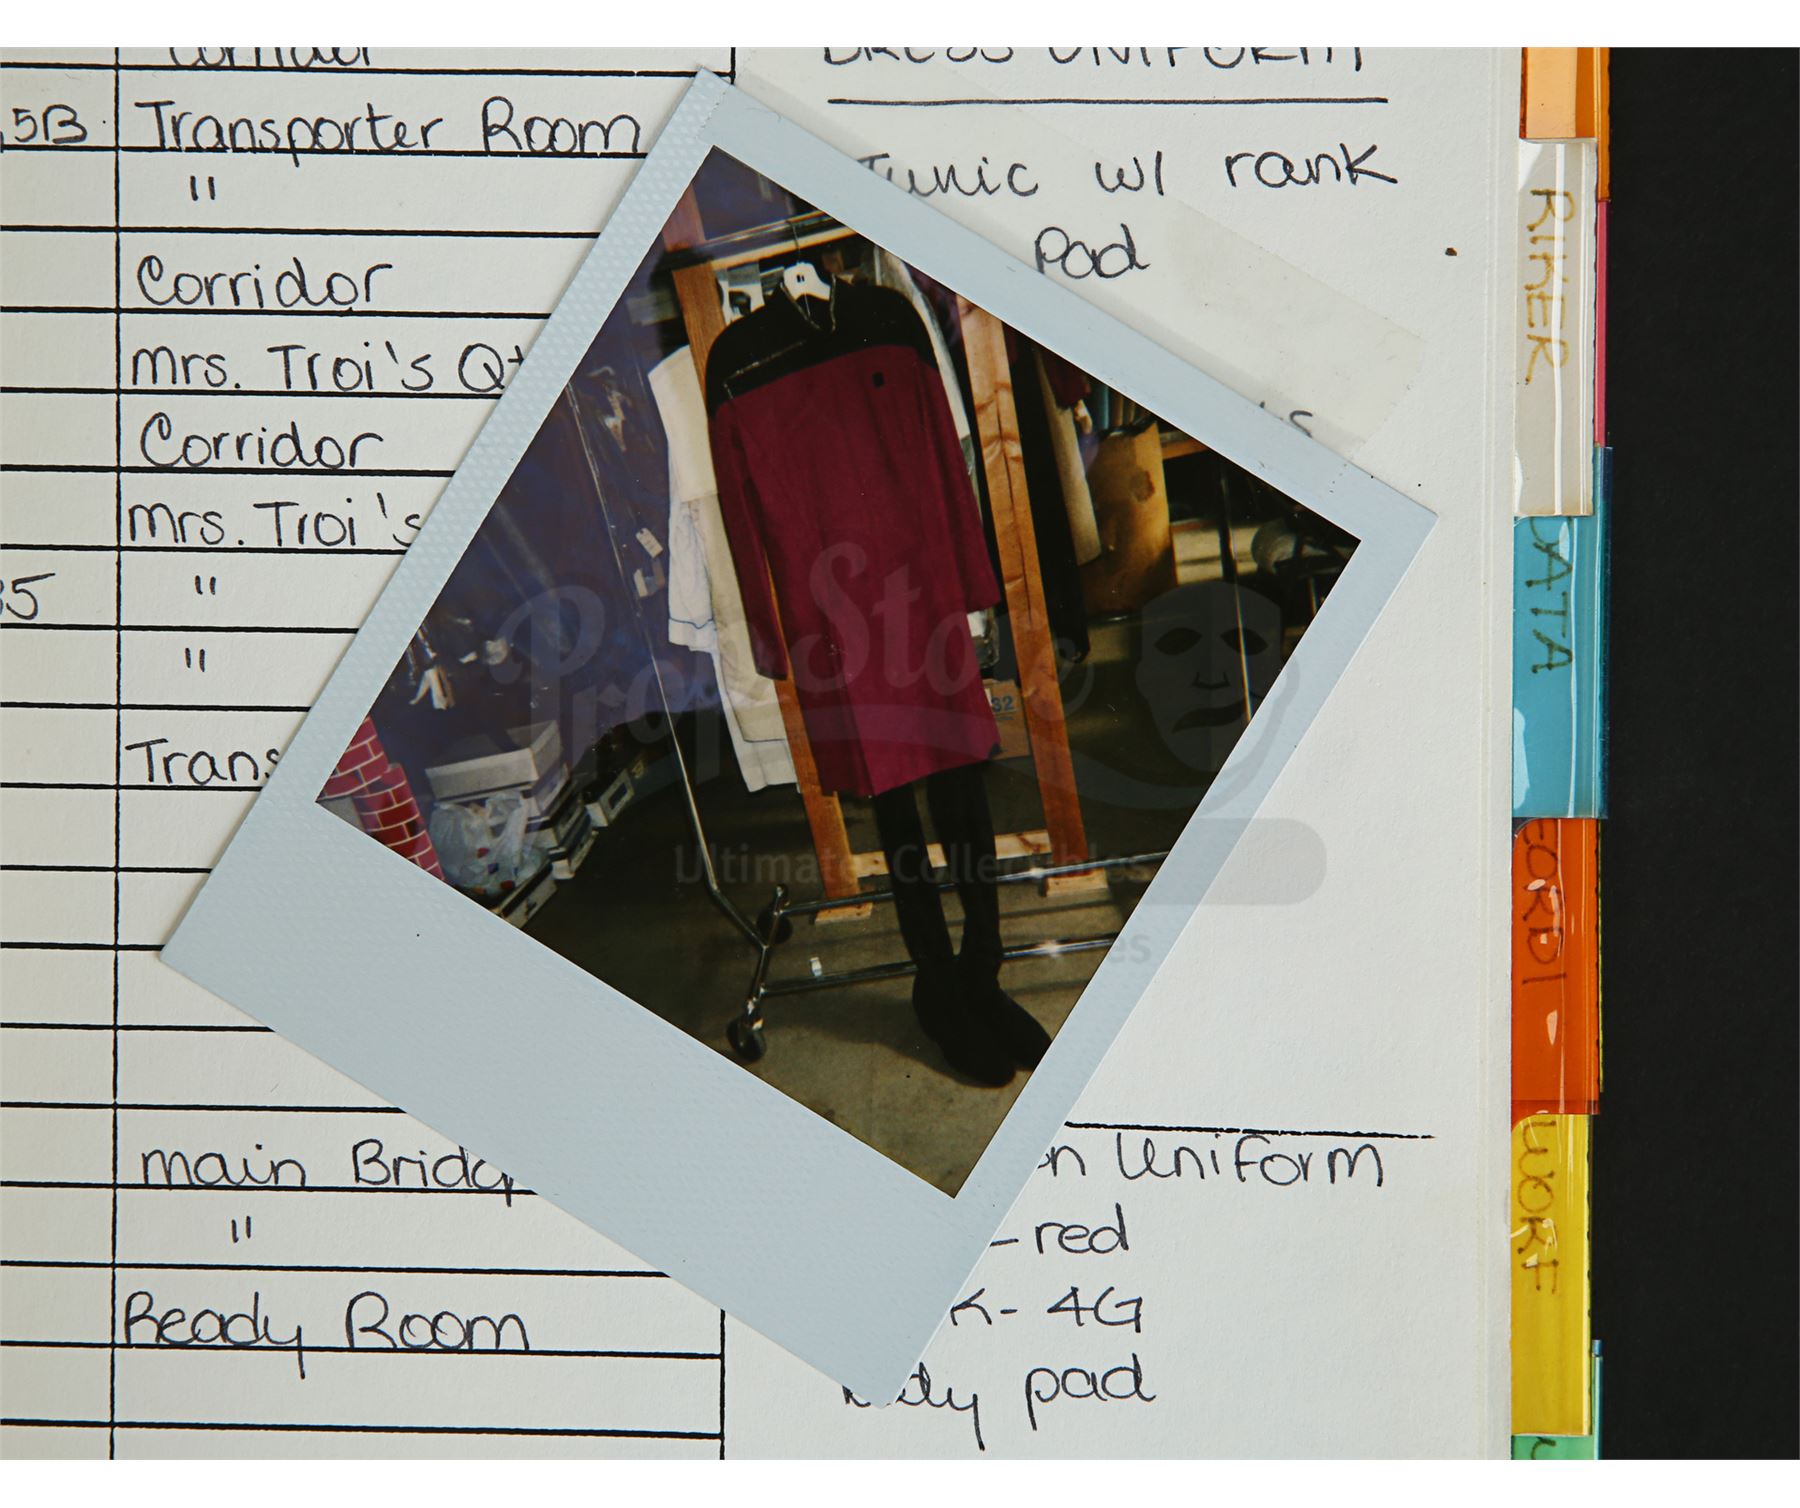 Corridor
5B Transporter Room
"
Corridor
Mrs. Troi's Qt
Corridor
Mrs. Troi's
35 "
"
Trans
Main Bridg
"
Ready Room
DRESS UNIFORM
Tunic w/ rank
Pad
on Uniform
-red
K- 4G
pad
RIKER
DATA
EORDI
WORF
32
Prop Store
Ultimate Collectibles